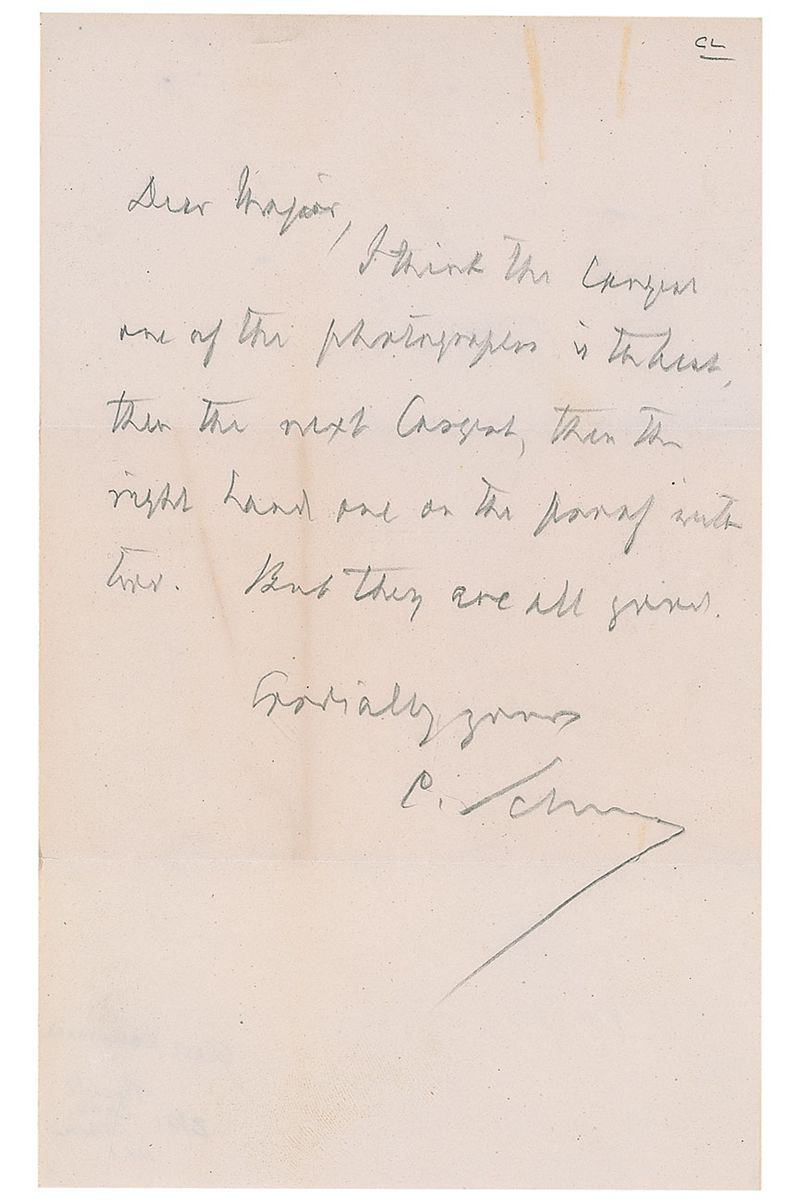 CL
Dear Major,
I think the largest
one of the photographs is the best,
then the next largest, then the
right hand one on the proof with
two. But they are all good.
Cordially yours
C. Schurz